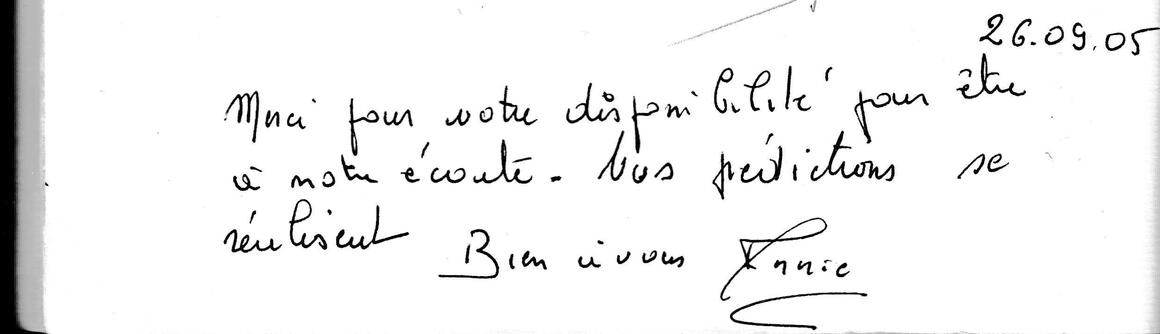 26.09.05
Merci pour votre disponibilité pour être
à notre écoute. Vos prédictions se
réalisent
Bien à vous Annie